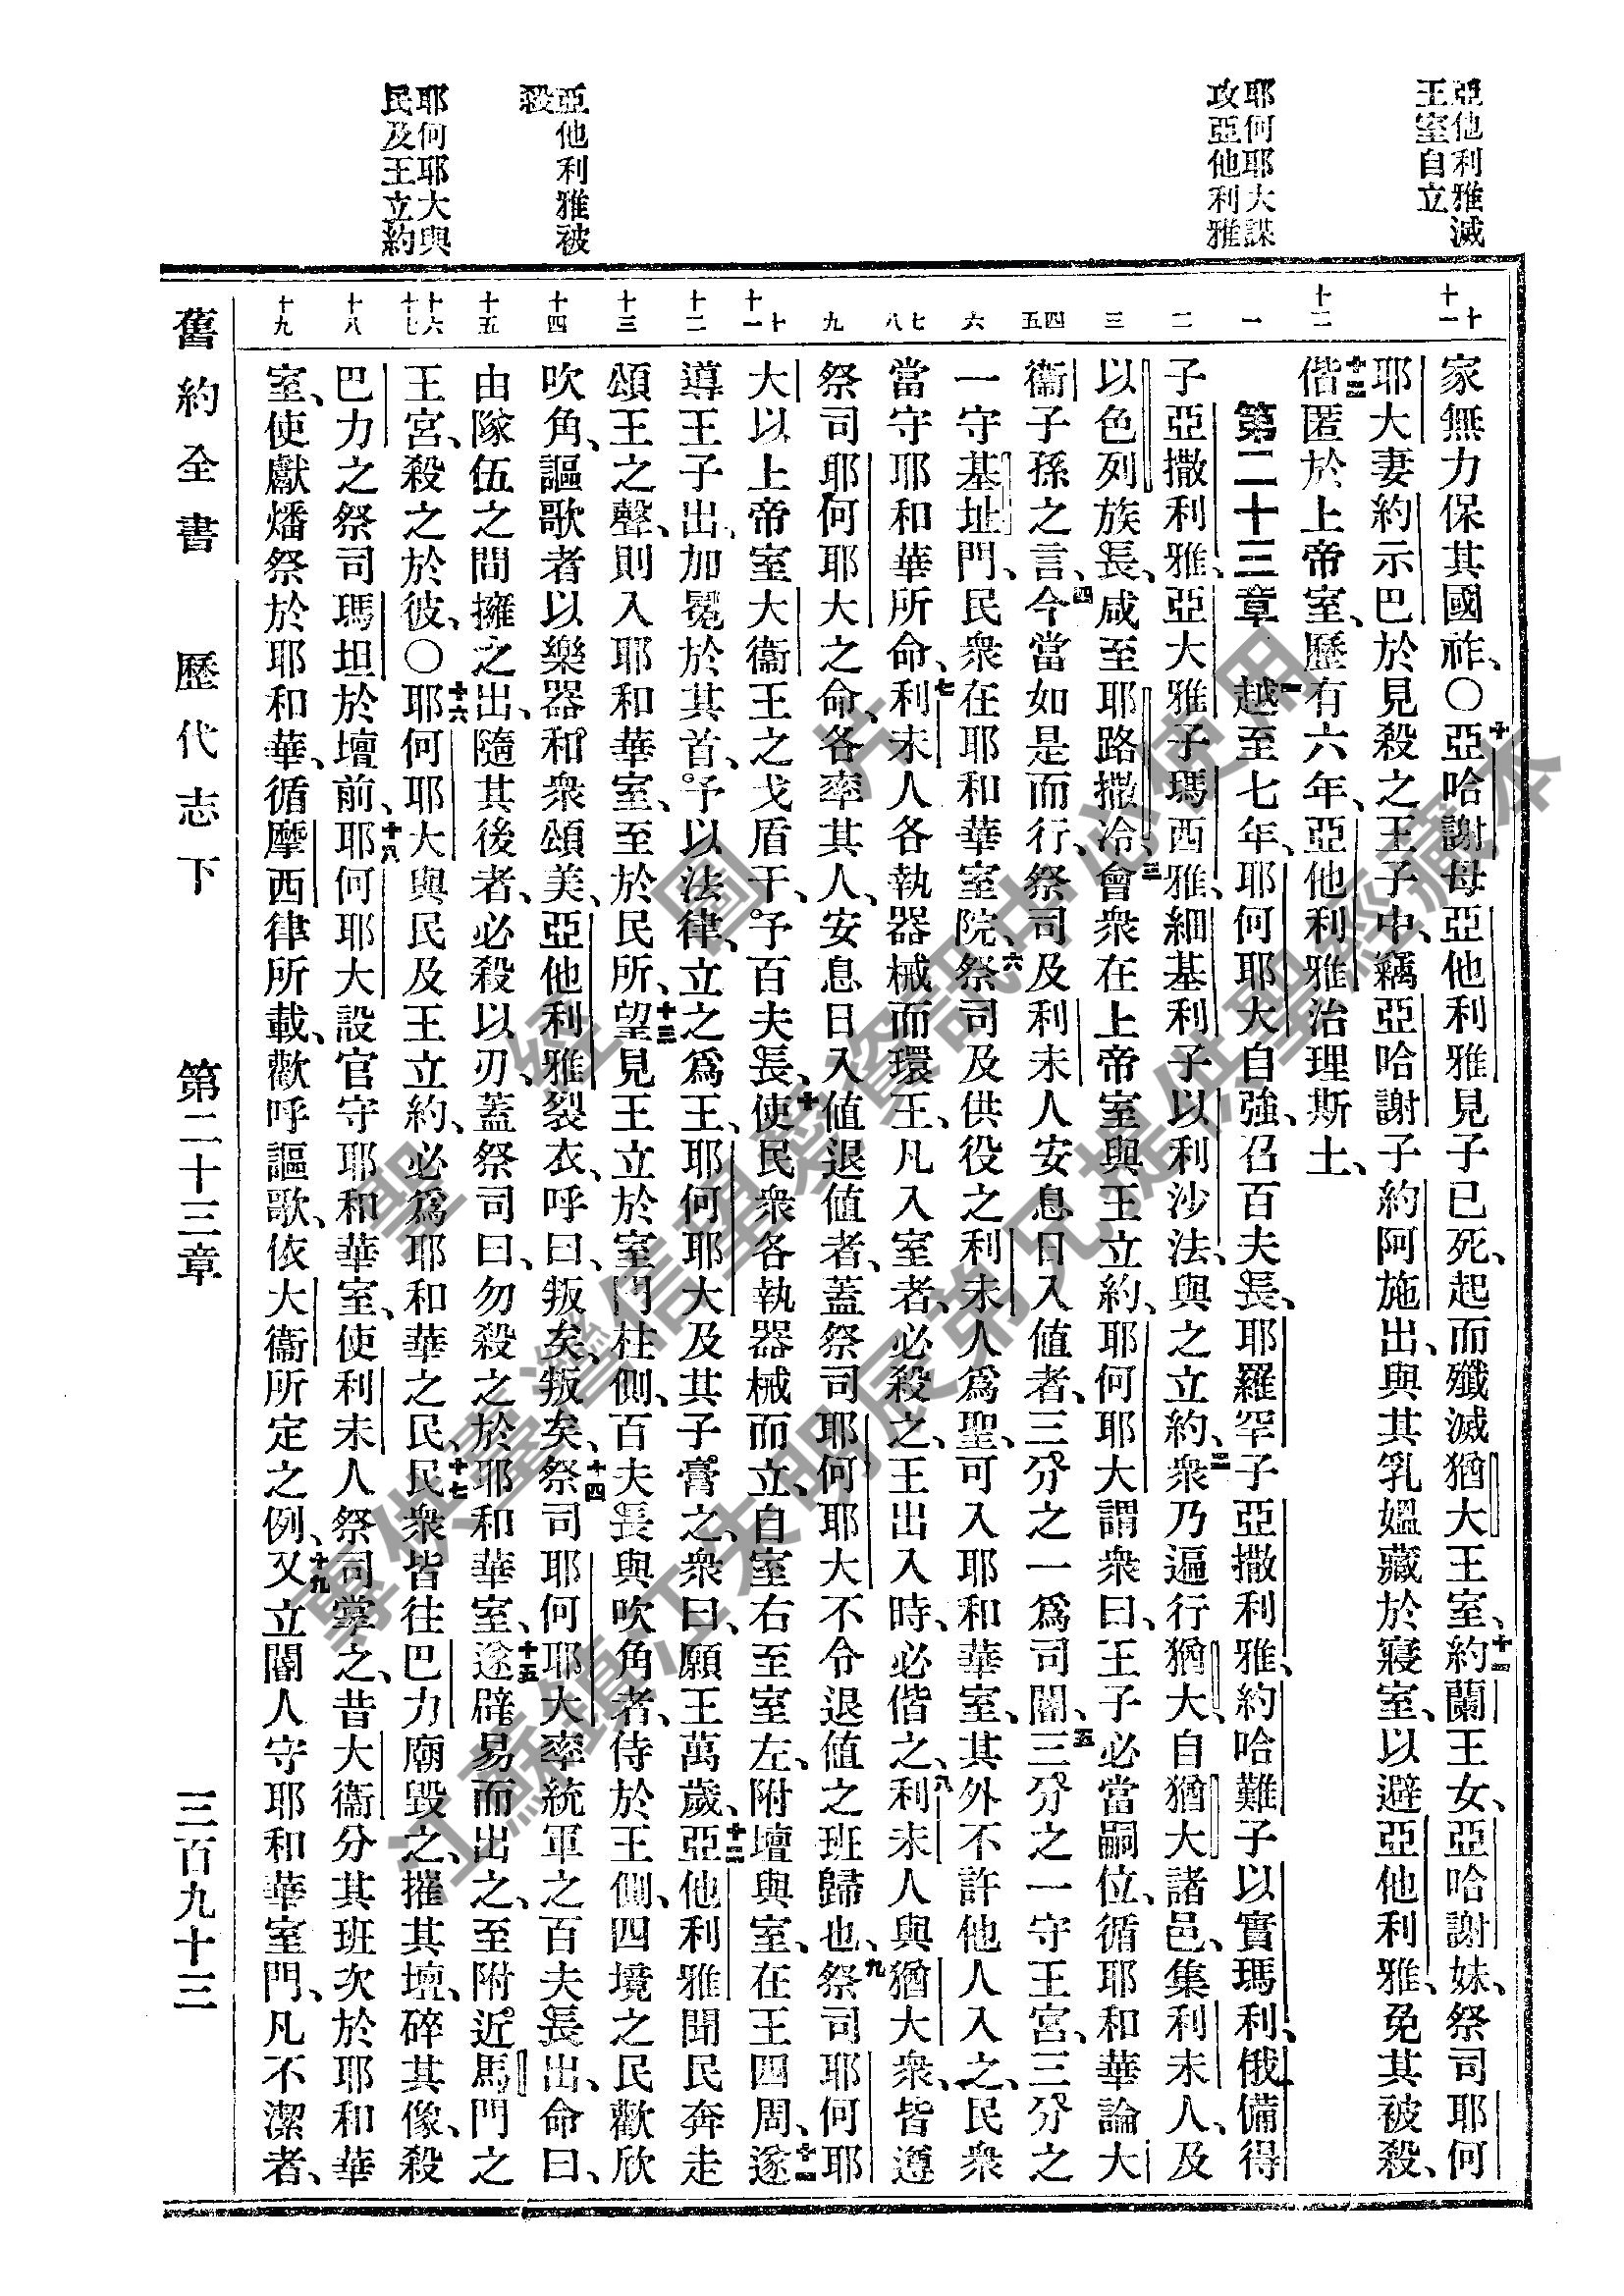 亞他利雅滅
王室自立
耶何耶大謀
攻亞他利雅
亞他利雅被
殺
耶何耶大與
民及王立約
十
十一
十二
一
二
三
四
五
六
七
八
九
十
十一
十二
十三
十四
十五
十六
十七
十八
十九
家無力保其國祚、〇十亞哈謝母亞他利雅見子已死、起而殲滅猶大王室、十一約蘭王女、亞哈謝妹、祭司耶何
耶大妻約示巴於見殺之王子中、竊亞哈謝子約阿施出、與其乳媼藏於寢室、以避亞他利雅、免其被殺、
十二偕匿於上帝室、歷有六年、亞他利雅治理斯土、
第二十三章 一越至七年、耶何耶大自強、召百夫長、耶羅罕子亞撒利雅、約哈難子以實瑪利、俄備得
子亞撒利雅、亞大雅子瑪西雅、細基利子以利沙法、與之立約、二衆乃遍行猶大、自猶大諸邑、集利未人、及
以色列族長、咸至耶路撒冷、三會衆在上帝室與王立約、耶何耶大謂衆曰、王子必當嗣位、循耶和華論大
衞子孫之言、四今當如是而行、祭司及利未人安息日入值者、三分之一爲司閽、五三分之一守王宮、三分之
一守基址門、民衆在耶和華室院、六祭司及供役之利未人爲聖、可入耶和華室、其外不許他人入之、民衆
當守耶和華所命、七利未人各執器械而環王、凡入室者、必殺之、王出入時、必偕之、八利未人與猶大衆、皆遵
祭司耶何耶大之命、各率其人、安息日入值退值者、蓋祭司耶何耶大不令退值之班歸也、九祭司耶何耶
大以上帝室大衞王之戈盾干、予百夫長、十使民衆各執器械而立、自室右至室左、附壇與室、在王四周、十一遂
導王子出、加冕於其首、予以法律、立之爲王、耶何耶大及其子膏之、衆曰、願王萬歲、十二亞他利雅聞民奔走
頌王之聲、則入耶和華室、至於民所、十三望見王立於室門柱側、百夫長與吹角者、侍於王側、四境之民歡欣
吹角、謳歌者以樂器和衆頌美、亞他利雅裂衣、呼曰、叛矣、叛矣、十四祭司耶何耶大率統軍之百夫長出、命曰、
由隊伍之間擁之出、隨其後者、必殺以刃、蓋祭司曰、勿殺之於耶和華室、十五遂辟易而出之、至附近馬門之
王宮、殺之於彼、〇十六耶何耶大與民及王立約、必爲耶和華之民、十七民衆皆往巴力廟毀之、摧其壇、碎其像、殺
巴力之祭司瑪坦於壇前、十八耶何耶大設官守耶和華室、使利未人祭司掌之、昔大衞分其班次於耶和華
室、使獻燔祭於耶和華、循摩西律所載、歡呼謳歌、依大衞所定之例、十九又立閽人守耶和華室門、凡不潔者、
舊約全書 歷代志下 第二十三章 三百九十三
聖經圖片
專供臺灣信望愛資訊中心使用
江蘇鎮江朱明辰弟兄提供聖經藏本